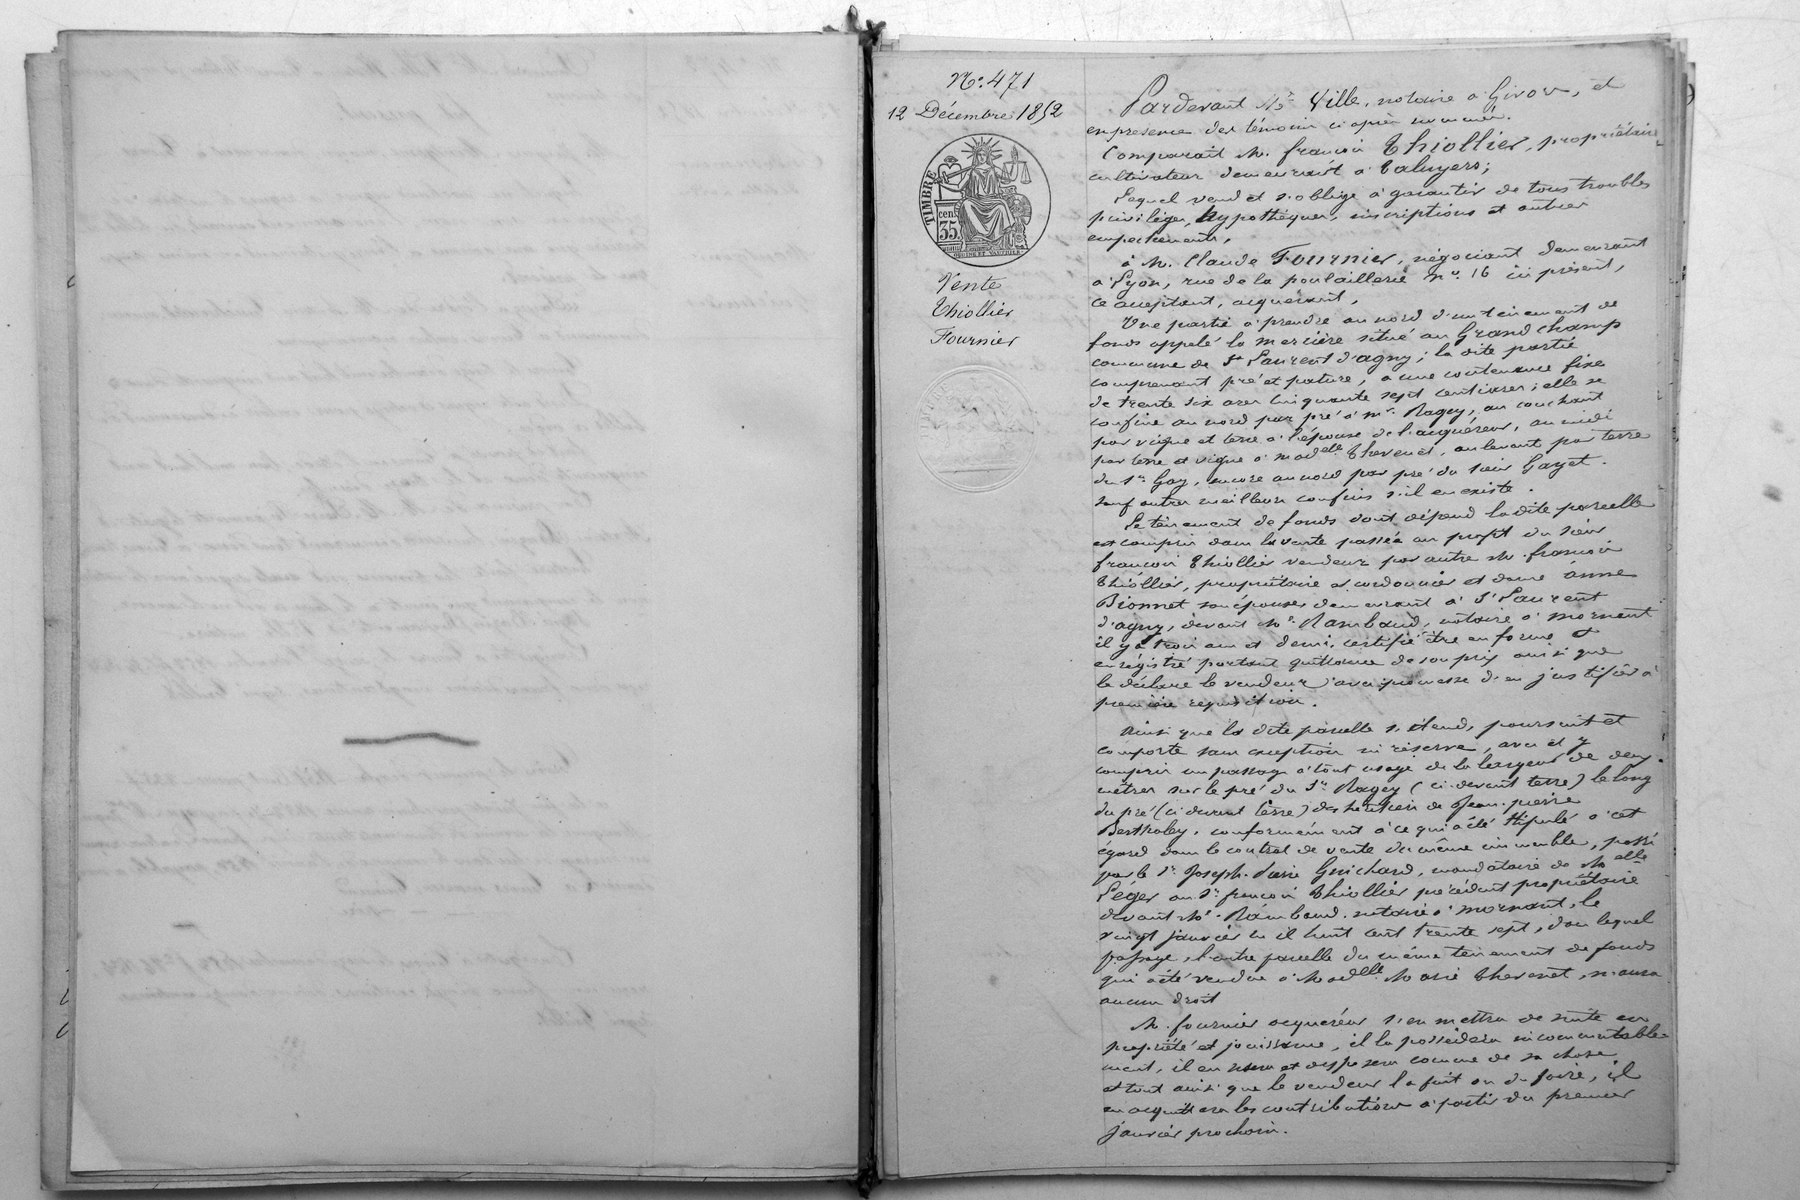 N.º 471
12 Décembre 1852
TIMBRE
cen
35.
Vente
Thiollier
Fournier
Pardevant Me Ville, notaire à Givors, et
en présence des témoins ci après nommés.
Comparait M. françois Thiollier, propriétaire
cultivateur demeurant à Taluyers;
Lequel vend et s'oblige à garantir de tous troubles
privilèges, hypothèques, inscriptions et autres
empêchements,
à M. Claude Fournier, négociant demeurant
à Lyon, rue de la poulaillerie n.º 16 ici présent,
ce acceptant, acquérant,
Une partie à prendre au nord d'un tènement de
fonds appelé la mercière situé au Grand champ
commune de St Laurent d'agny; la dite partie
comprenant pré et pature, a une contenance fixe
de trente six ares cinquante sept centiares; elle se
confine au nord par pré à mr. Ragey, au couchant
par vigne et terre à l'épouse de l'acquéreur, au midi
par terre et vigne à madelle Thevenet, au levant par terre
du Sr. Gay, encore au nord par pré du sieur Gayet.
sauf autres meilleurs confins s'il en existe.
Le tènement de fonds dont dépend ladite parcelle
est compris dans la vente passée au profit du sieur
françois Thiollier vendeur par autre M. françois
Thiollier, propriétaire et cordonnier et dame Anne
Bionnet son épouse demeurant à St Laurent
d'agny, devant Me. Rambaud, notaire à mornant
il y a trois ans et demi, certifié être en forme et
enrégistré portant quittance de son prix ainsi que
le déclare le vendeur avec promesse d'en justifier à
première réquisition.
Ainsi que la dite parcelle s'étend, poursuit et
comporte sans exception ni réserve, avec et y
compris un passage à tout usage de la largeur de deux
mètres sur le pré du Sr. Ragey (ci-devant terre) le long
du pré (ci devant terre) des héritiers de Jean-pierre
Bertholey, conformément à ce qui a été stipulé à cet
égard dans le contrat de vente du même immeuble, passé
par le Sr. Joseph-pierre Guichard, mandataire de Melle
Léger au Sr. françois Thiollier précédent propriétaire
devant Me. Rambaud, notaire à mornant, le
vingt janvier mil huit cent trente sept, dans lequel
passage, l'autre parcelle du même tènement de fonds
qui a été vendue à Madelle. Marie Thevenet, n'aura
aucun droit
M. fournier acquéreur s'en mettra de suite en
propriété et jouissance, il la possèdera incommutable-
ment, il en usera et disposera comme de sa chose
et tout ainsi que le vendeur l'a fait ou dû faire, il
en acquittera les contributions à partir du premier
janvier prochain.